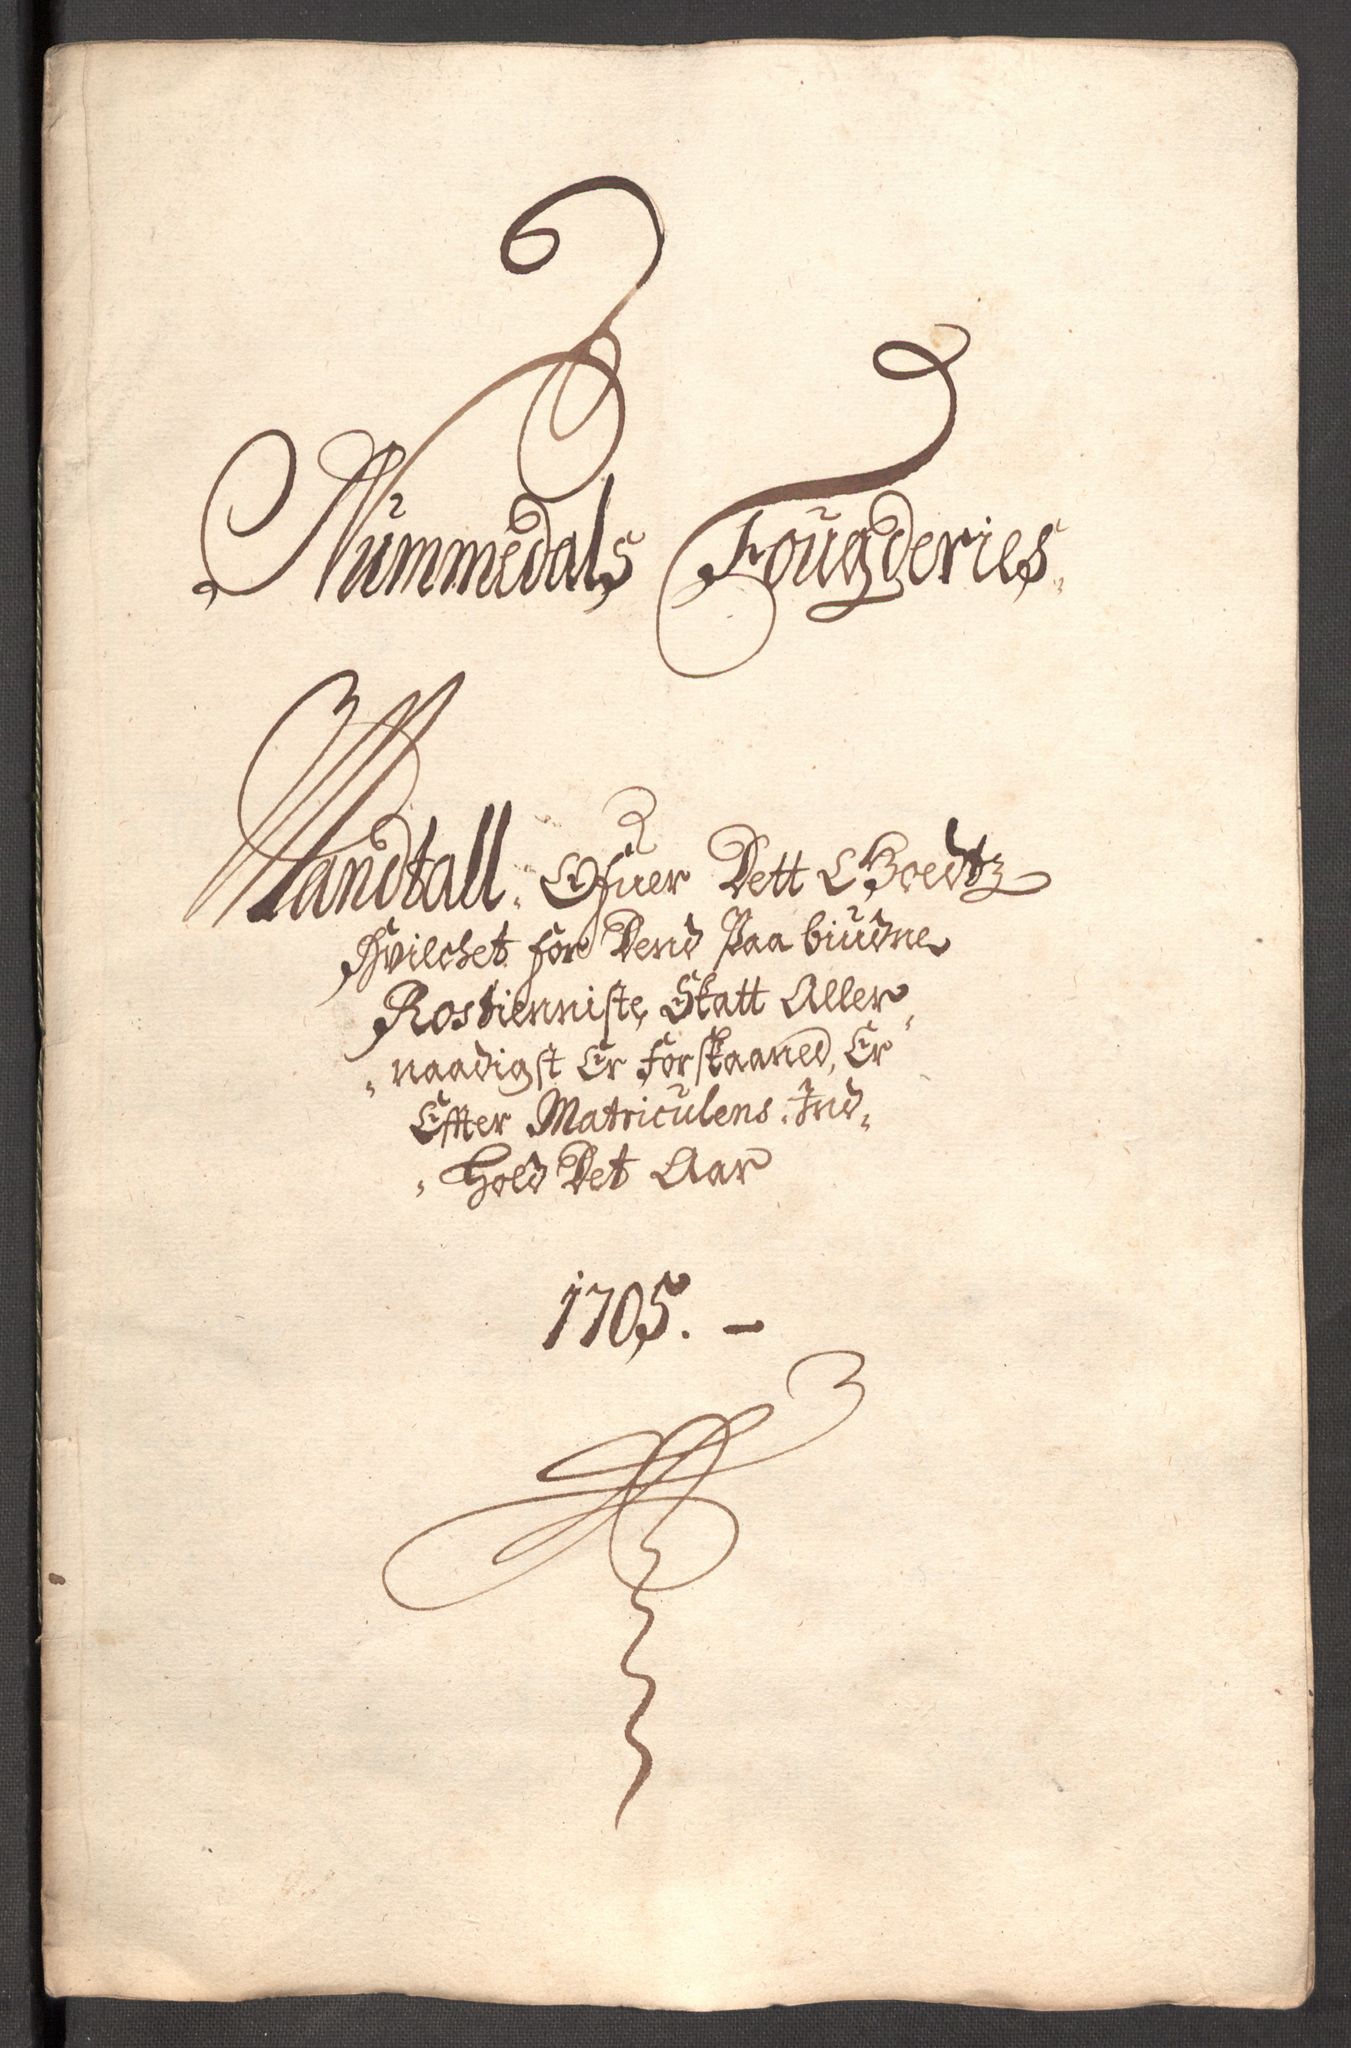 Nummedals Fougderies.
Mandtall. Ofuer Dett Goedtz
Hvilchet for Dend Paabiudne
Rostienniste Skatt Aller„
„naadigst Er Forskaaned, Er
Effter Matriculens. Ind„
„hold Det Aar
1705. –